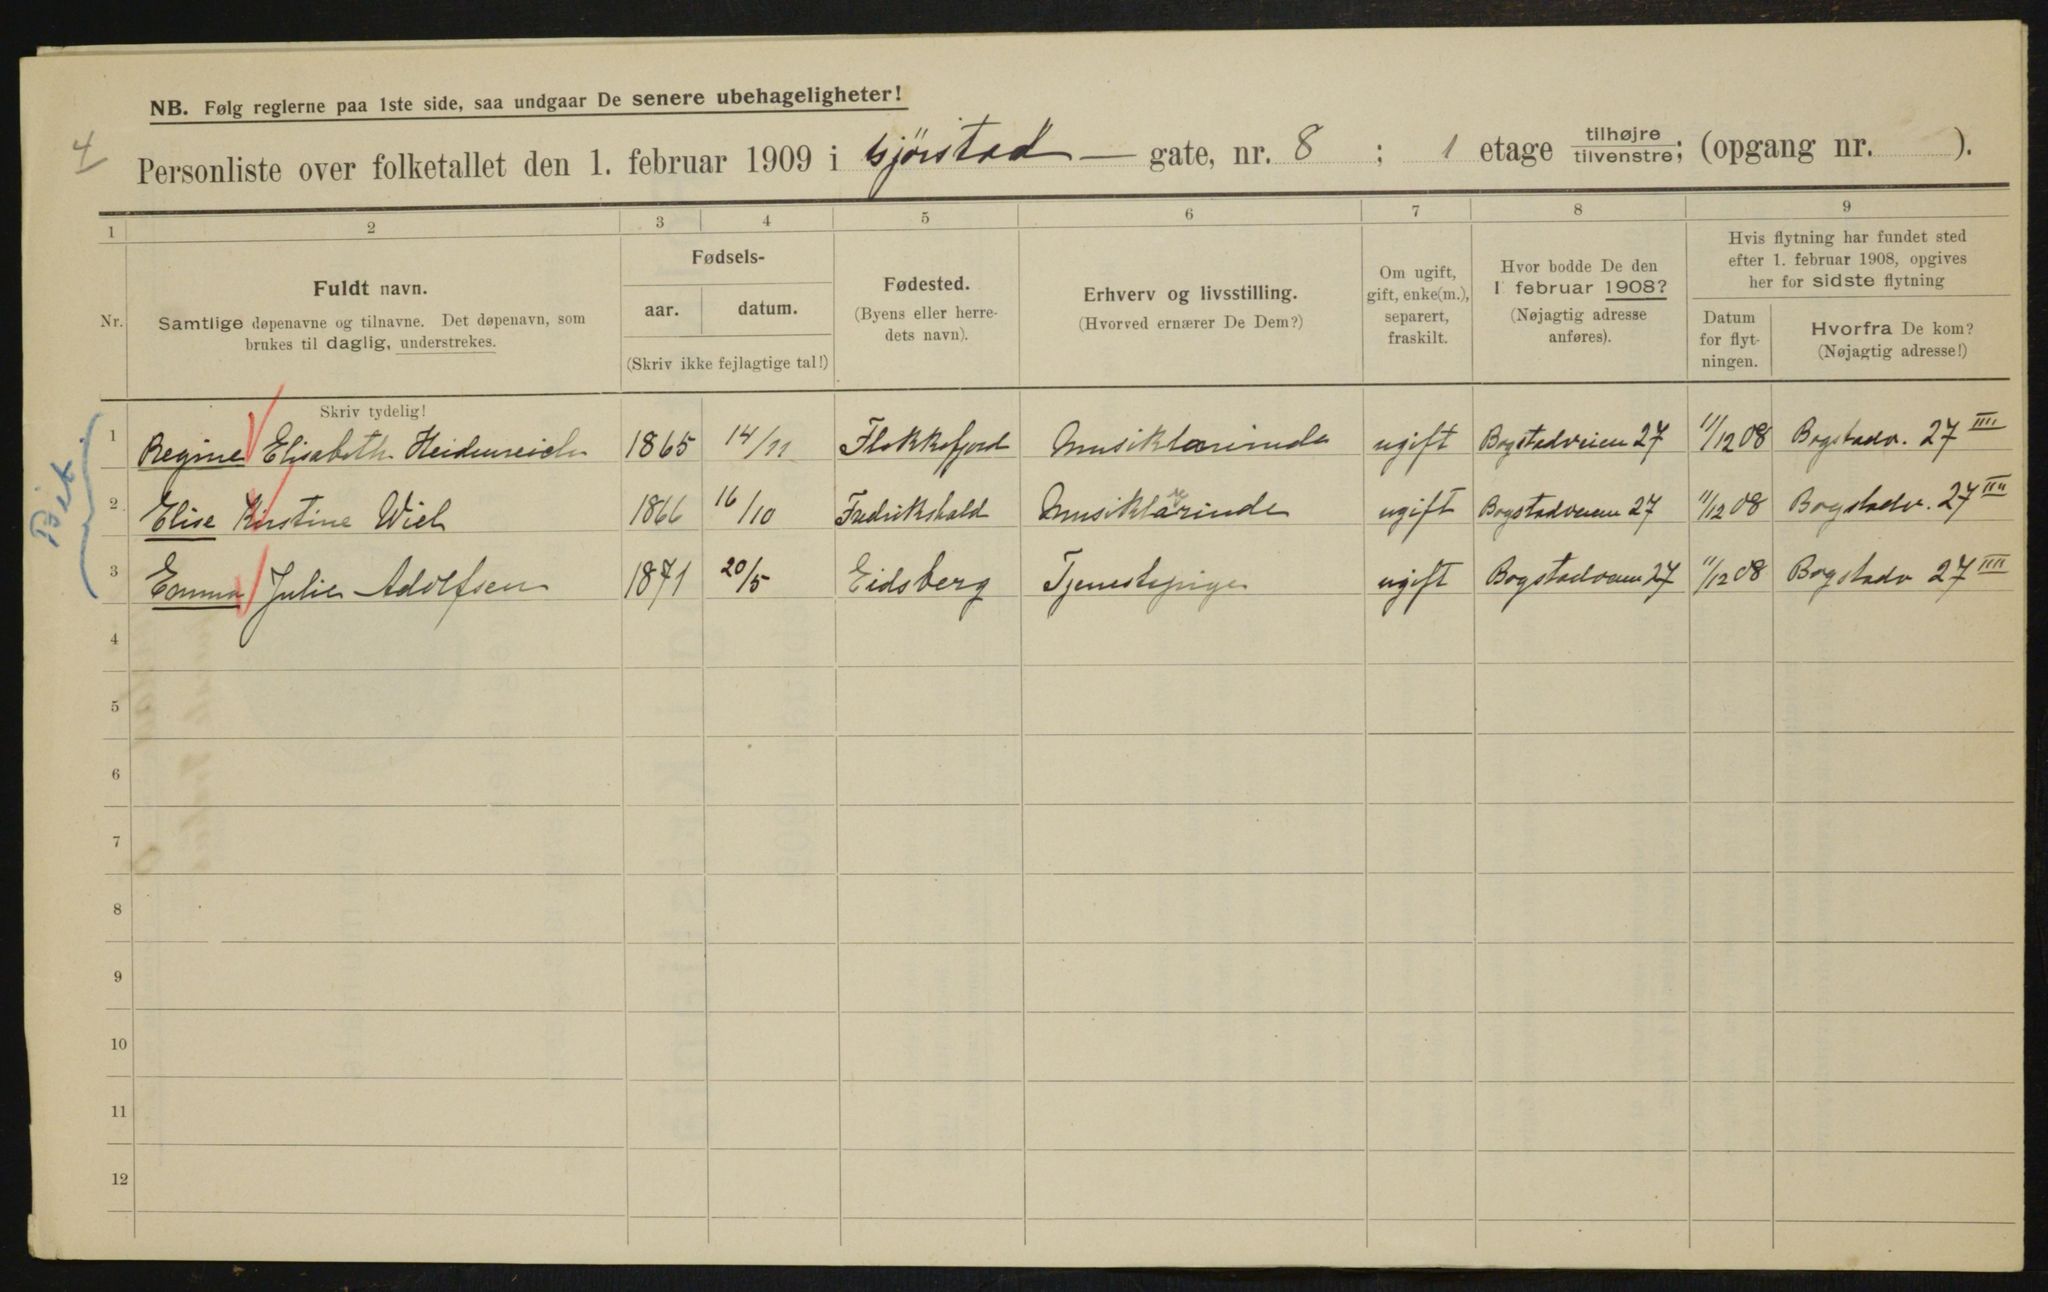 NB. Følg reglerne paa 1ste side, saa undgaar De senere ubehageligheter!
4
Personliste over folketallet den 1. februar 1909 i Gjørstad — gate, nr. 8 ; 1 etage tilhøjre/tilvenstre; (opgang nr. ).
1 2 3 4 5 6 7 8 9
Nr.
Fuldt navn.
Samtlige døpenavne og tilnavne. Det døpenavn, som
brukes til daglig, understrekes.
Fødsels-
aar. datum.
(Skriv ikke fejlagtige tal!)
Fødested.
(Byens eller herre-
dets navn).
Erhverv og livsstilling.
(Hvorved ernærer De Dem?)
Om ugift,
gift, enke(m.),
separert,
fraskilt.
Hvor bodde De den
1 februar 1908?
(Nøjagtig adresse
anføres).
Hvis flytning har fundet sted
efter 1. februar 1908, opgives
her for sidste flytning
Datum
for flyt-
ningen.
Hvorfra De kom?
(Nøjagtig adresse!)
Skriv tydelig!
1 Regine Elisabeth Heidenreich 1865 14/11 Flekkefjord Musiklærerinde ugift Bogstadveien 27 11/12 08 Bogstadv. 27 IIII
2 Elise Kirstine Wiel 1866 16/10 Fredrikshald Musiklærerinde ugift Bogstadveien 27 11/12 08 Bogstadv. 27 IIII
3 Emma Julie Adolfsen 1871 20/5 Eidsberg Tjenestepige ugift Bogstadveien 27 11/12 08 Bogstadv 27 IIII
4
5
6
7
8
9
10
11
12